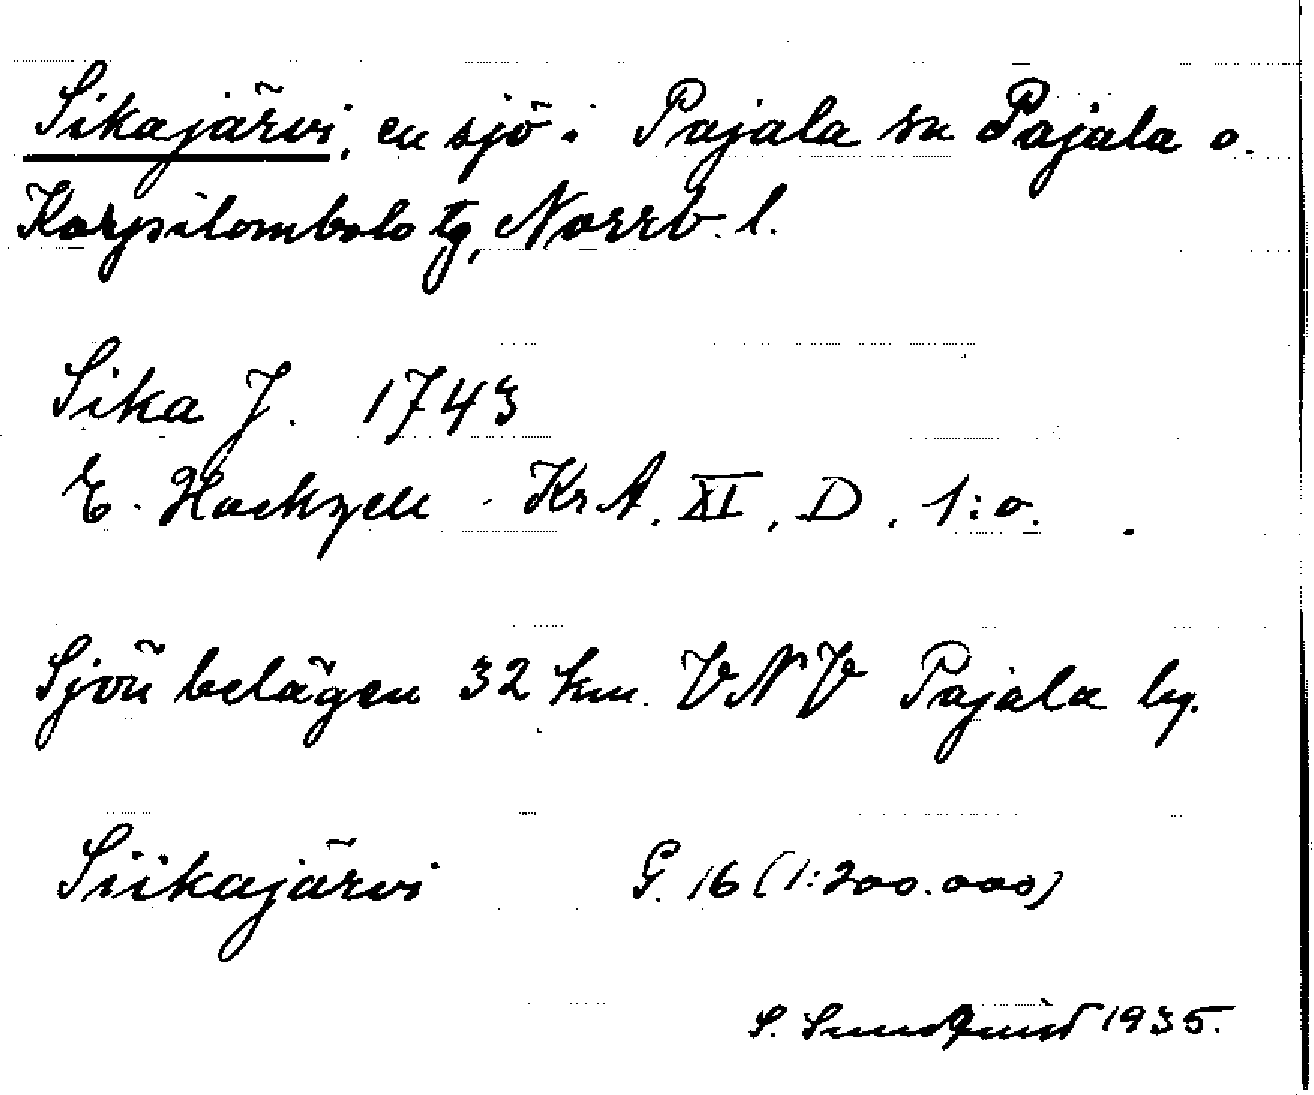 Sikajärvi, en sjö i Pajala sn Pajala o.
Korpilombolo tg, Norrb. l.
Sika J. 1743
E. Hackzell KrA. XI, D, 1:o.
Sjön belägen 32 km. VNV Pajala by.
Siikajärvi G. 16 (1:200.000)
S. Sundqvist 1935.